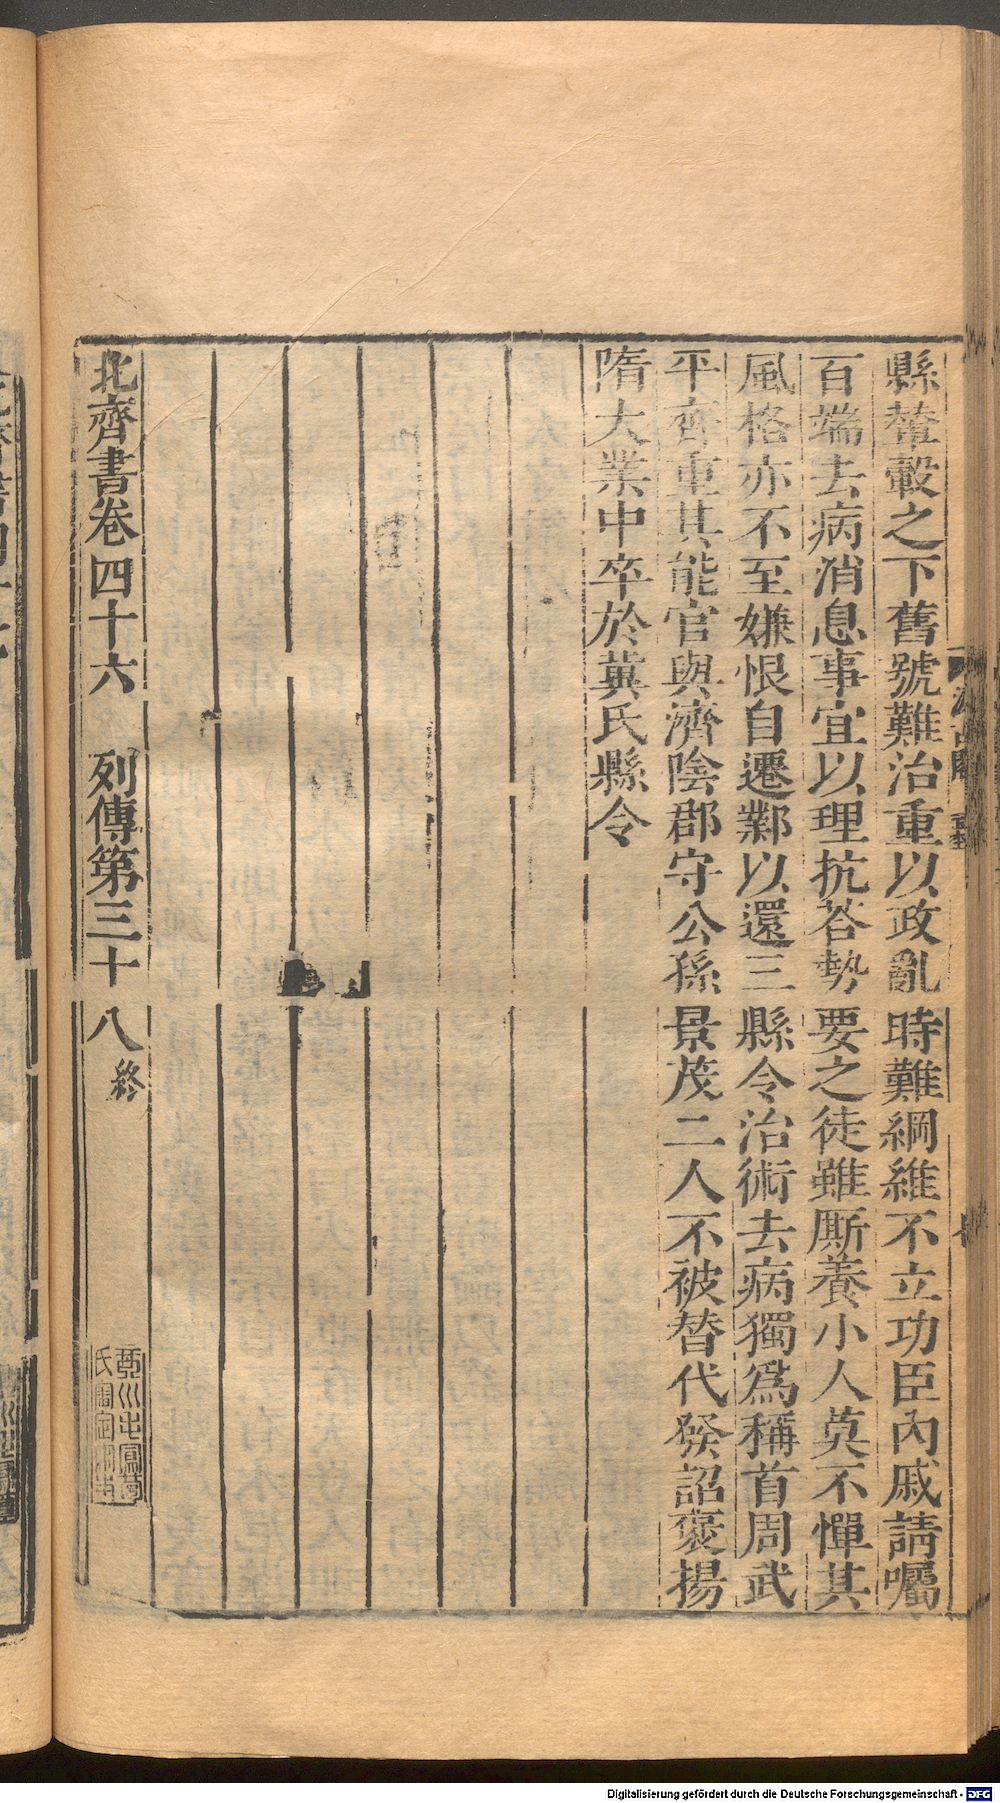 縣輦轂之下舊號難治重以政亂時難綱維不立功臣內戚請囑
百端去病消息事宜以理抗荅勢要之徒雖厮養小人莫不憚其
風格亦不至嫌恨自遷鄴以還三縣令治術去病獨爲稱首周武
平齊重其能官與濟陰郡守公孫景茂二人不被替代發詔褒揚
隋大業中卒於冀氏縣令
北齊書卷四十六　列傳第三十八終
Digitalisierung gefördert durch die Deutsche Forschungsgemeinschaft - DFG